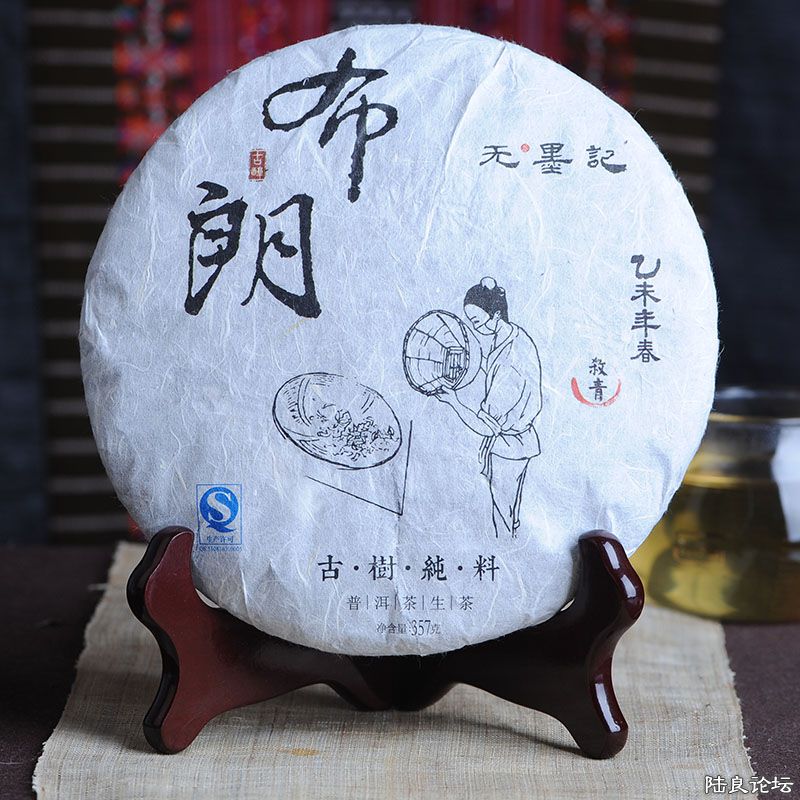 布朗
古醇
无墨記
乙未年春
殺青
生产许可
古·樹·純·料
普|洱|茶|生|茶
净含量:357克
陆良论坛